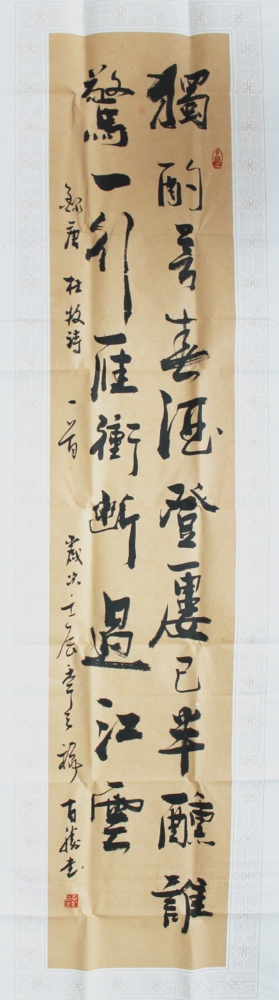 獨酌芳春酒登樓已半醺誰
驚一行雁衝斷過江雲
錄唐杜牧詩一首 歲次壬辰 書